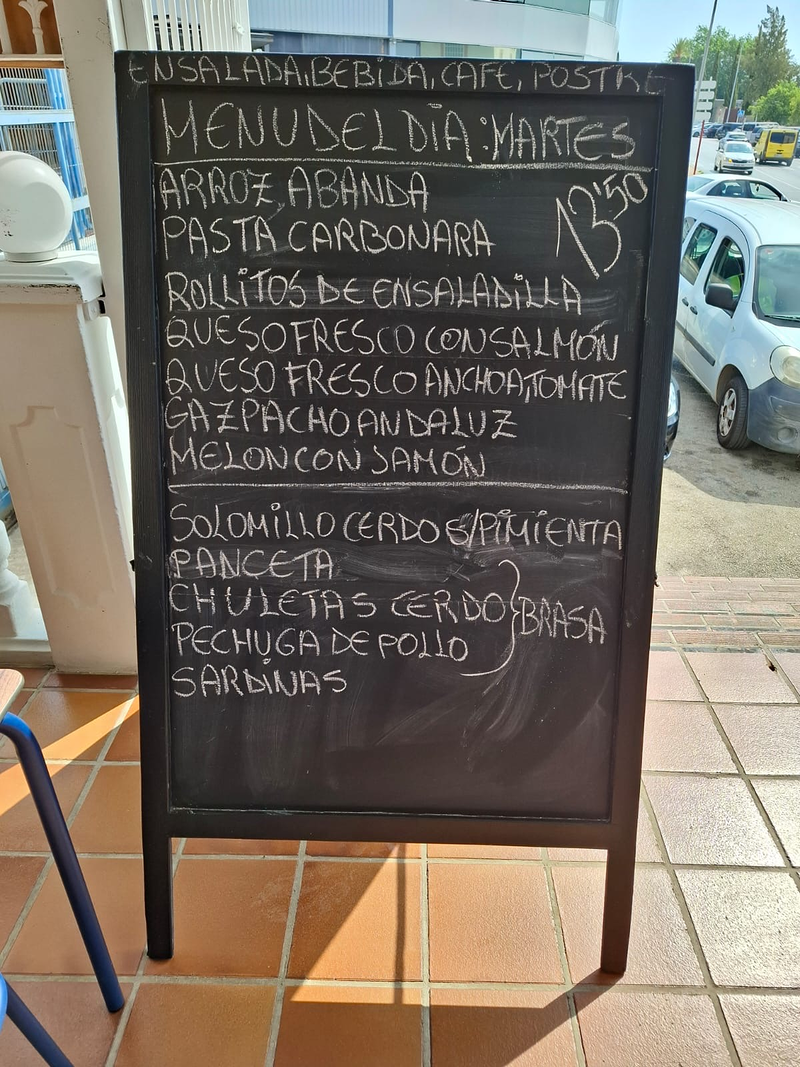 ENSALADA, BEBIDA, CAFE, POSTRE
MENU DEL DÍA: MARTES
ARROZ ABANDA
13'50
PASTA CARBONARA
ROLLITOS DE ENSALADILLA
QUESO FRESCO CON SALMÓN
QUESO FRESCO ANCHOA, TOMATE
GAZPACHO ANDALUZ
MELON CON JAMÓN
SOLOMILLO CERDO S/PIMIENTA
PANCETA
CHULETAS CERDO
BRASA
PECHUGA DE POLLO
SARDINAS